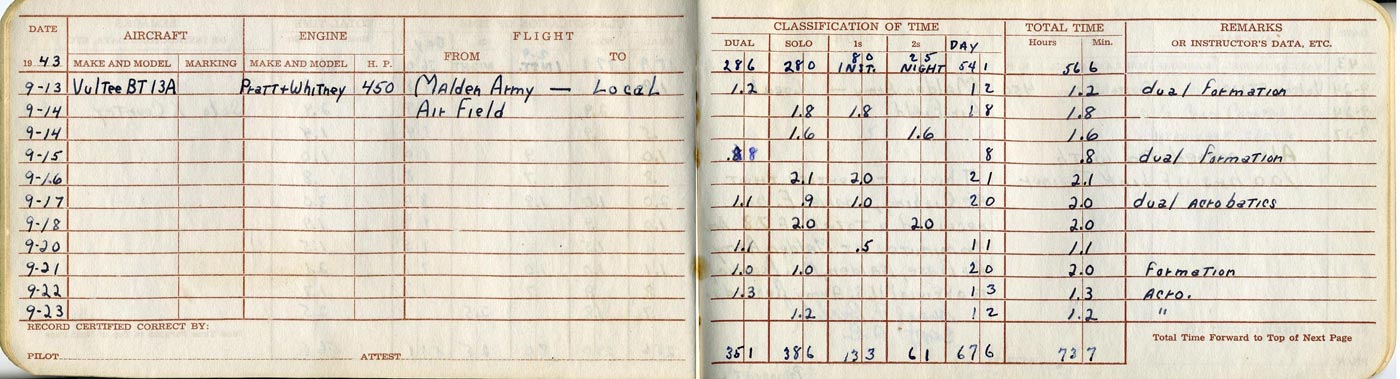 DATE AIRCRAFT ENGINE FLIGHT CLASSIFICATION OF TIME TOTAL TIME REMARKS
FROM TO DUAL SOLO 1s 2s DAY Hours Min. OR INSTRUCTOR'S DATA, ETC.
1943 MAKE AND MODEL MARKING MAKE AND MODEL H. P. 28 6 28 0 8 0 INST. 2 5 NIGHT 54 1 56 6
9-13 Vultee BT 13A Pratt+Whitney 450 Malden Army — Local 1.2 1 2 1.2 dual Formation
9-14 Air Field 1.8 1.8 1 8 1.8
9-14 1.6 1.6 1.6
9-15 .8 8 8 .8 dual Formation
9-16 2.1 2.0 2 1 2.1
9-17 1.1 .9 1.0 2 0 2.0 dual Acrobatics
9-18 2.0 2.0 2.0
9-20 1.1 .5 1 1 1.1
9-21 1.0 1.0 2 0 2.0 Formation
9-22 1.3 1 3 1.3 Acro.
9-23 1.2 1 2 1.2 "
RECORD CERTIFIED CORRECT BY: Total Time Forward to Top of Next Page
PILOT ATTEST 35 1 38 6 13 3 6 1 67 6 73 7